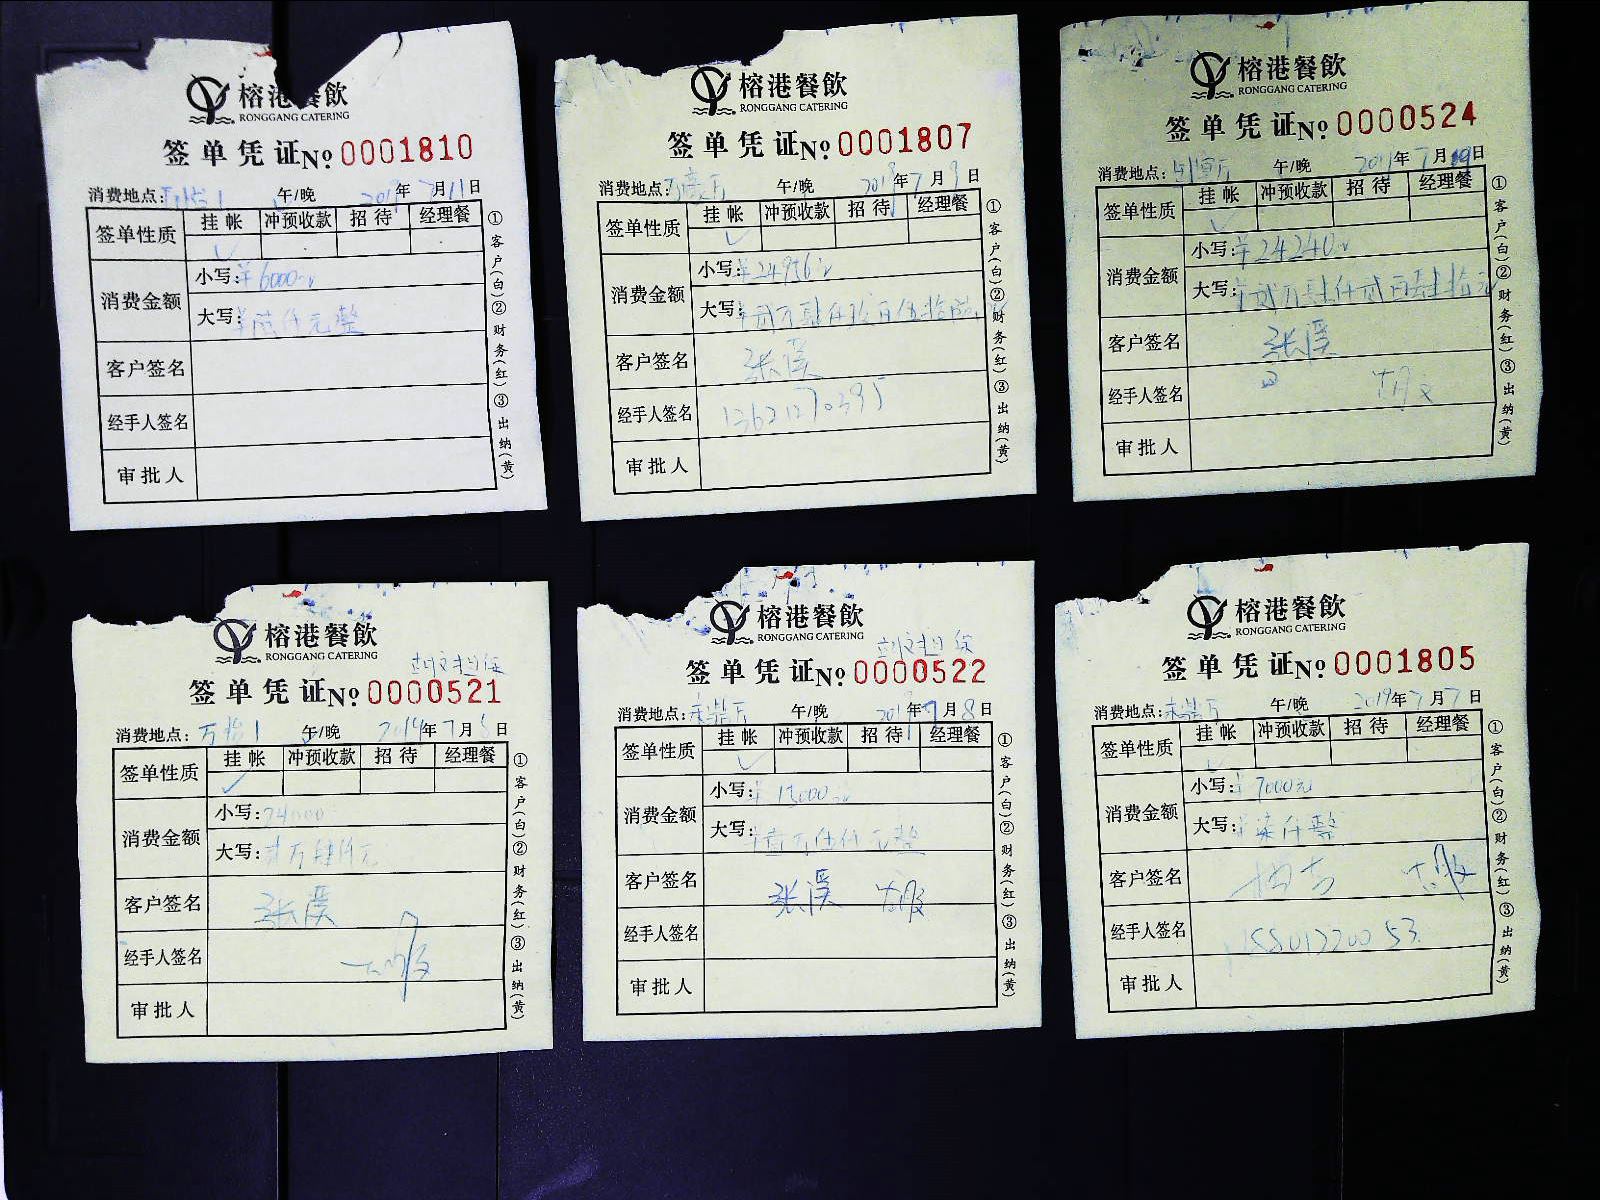 榕港餐飲
RONGGANG CATERING
签单凭证 No 0001810
消费地点: 午/晚 2019年7月11日
签单性质 挂帐 冲预收款 招待 经理餐
✓
消费金额 小写: ¥6000元
大写: ¥陆仟元整
客户签名
经手人签名
审批人
①客户(白)②财务(红)③出纳(黄)
榕港餐飲
RONGGANG CATERING
签单凭证 No 0001807
消费地点: 午/晚 2019年7月9日
签单性质 挂帐 冲预收款 招待 经理餐
✓
消费金额 小写: ¥24956元
大写: ¥贰万肆仟玖百伍拾陆
客户签名 张溪
经手人签名 13621270395
审批人
①客户(白)②财务(红)③出纳(黄)
榕港餐飲
RONGGANG CATERING
签单凭证 No 0000524
消费地点: 午/晚 2019年7月日
签单性质 挂帐 冲预收款 招待 经理餐
✓
消费金额 小写: ¥24240元
大写: ¥贰万肆仟贰百肆拾元
客户签名 张溪
经手人签名
审批人
①客户(白)②财务(红)③出纳(黄)
榕港餐飲
RONGGANG CATERING
签单凭证 No 0000521
消费地点: 万 午/晚 2019年7月日
签单性质 挂帐 冲预收款 招待 经理餐
✓
消费金额 小写: 24000
大写: 贰万肆仟元
客户签名 张溪
经手人签名
审批人
①客户(白)②财务(红)③出纳(黄)
榕港餐飲
RONGGANG CATERING
签单凭证 No 0000522
消费地点: 午/晚 2019年7月8日
签单性质 挂帐 冲预收款 招待 经理餐
✓
消费金额 小写: ¥15000元
大写: ¥壹万伍仟元整
客户签名 张溪
经手人签名
审批人
①客户(白)②财务(红)③出纳(黄)
榕港餐飲
RONGGANG CATERING
签单凭证 No 0001805
消费地点: 午/晚 2019年7月7日
签单性质 挂帐 冲预收款 招待 经理餐
✓
消费金额 小写: ¥7000元
大写: ¥柒仟整
客户签名
经手人签名 15801220053
审批人
①客户(白)②财务(红)③出纳(黄)